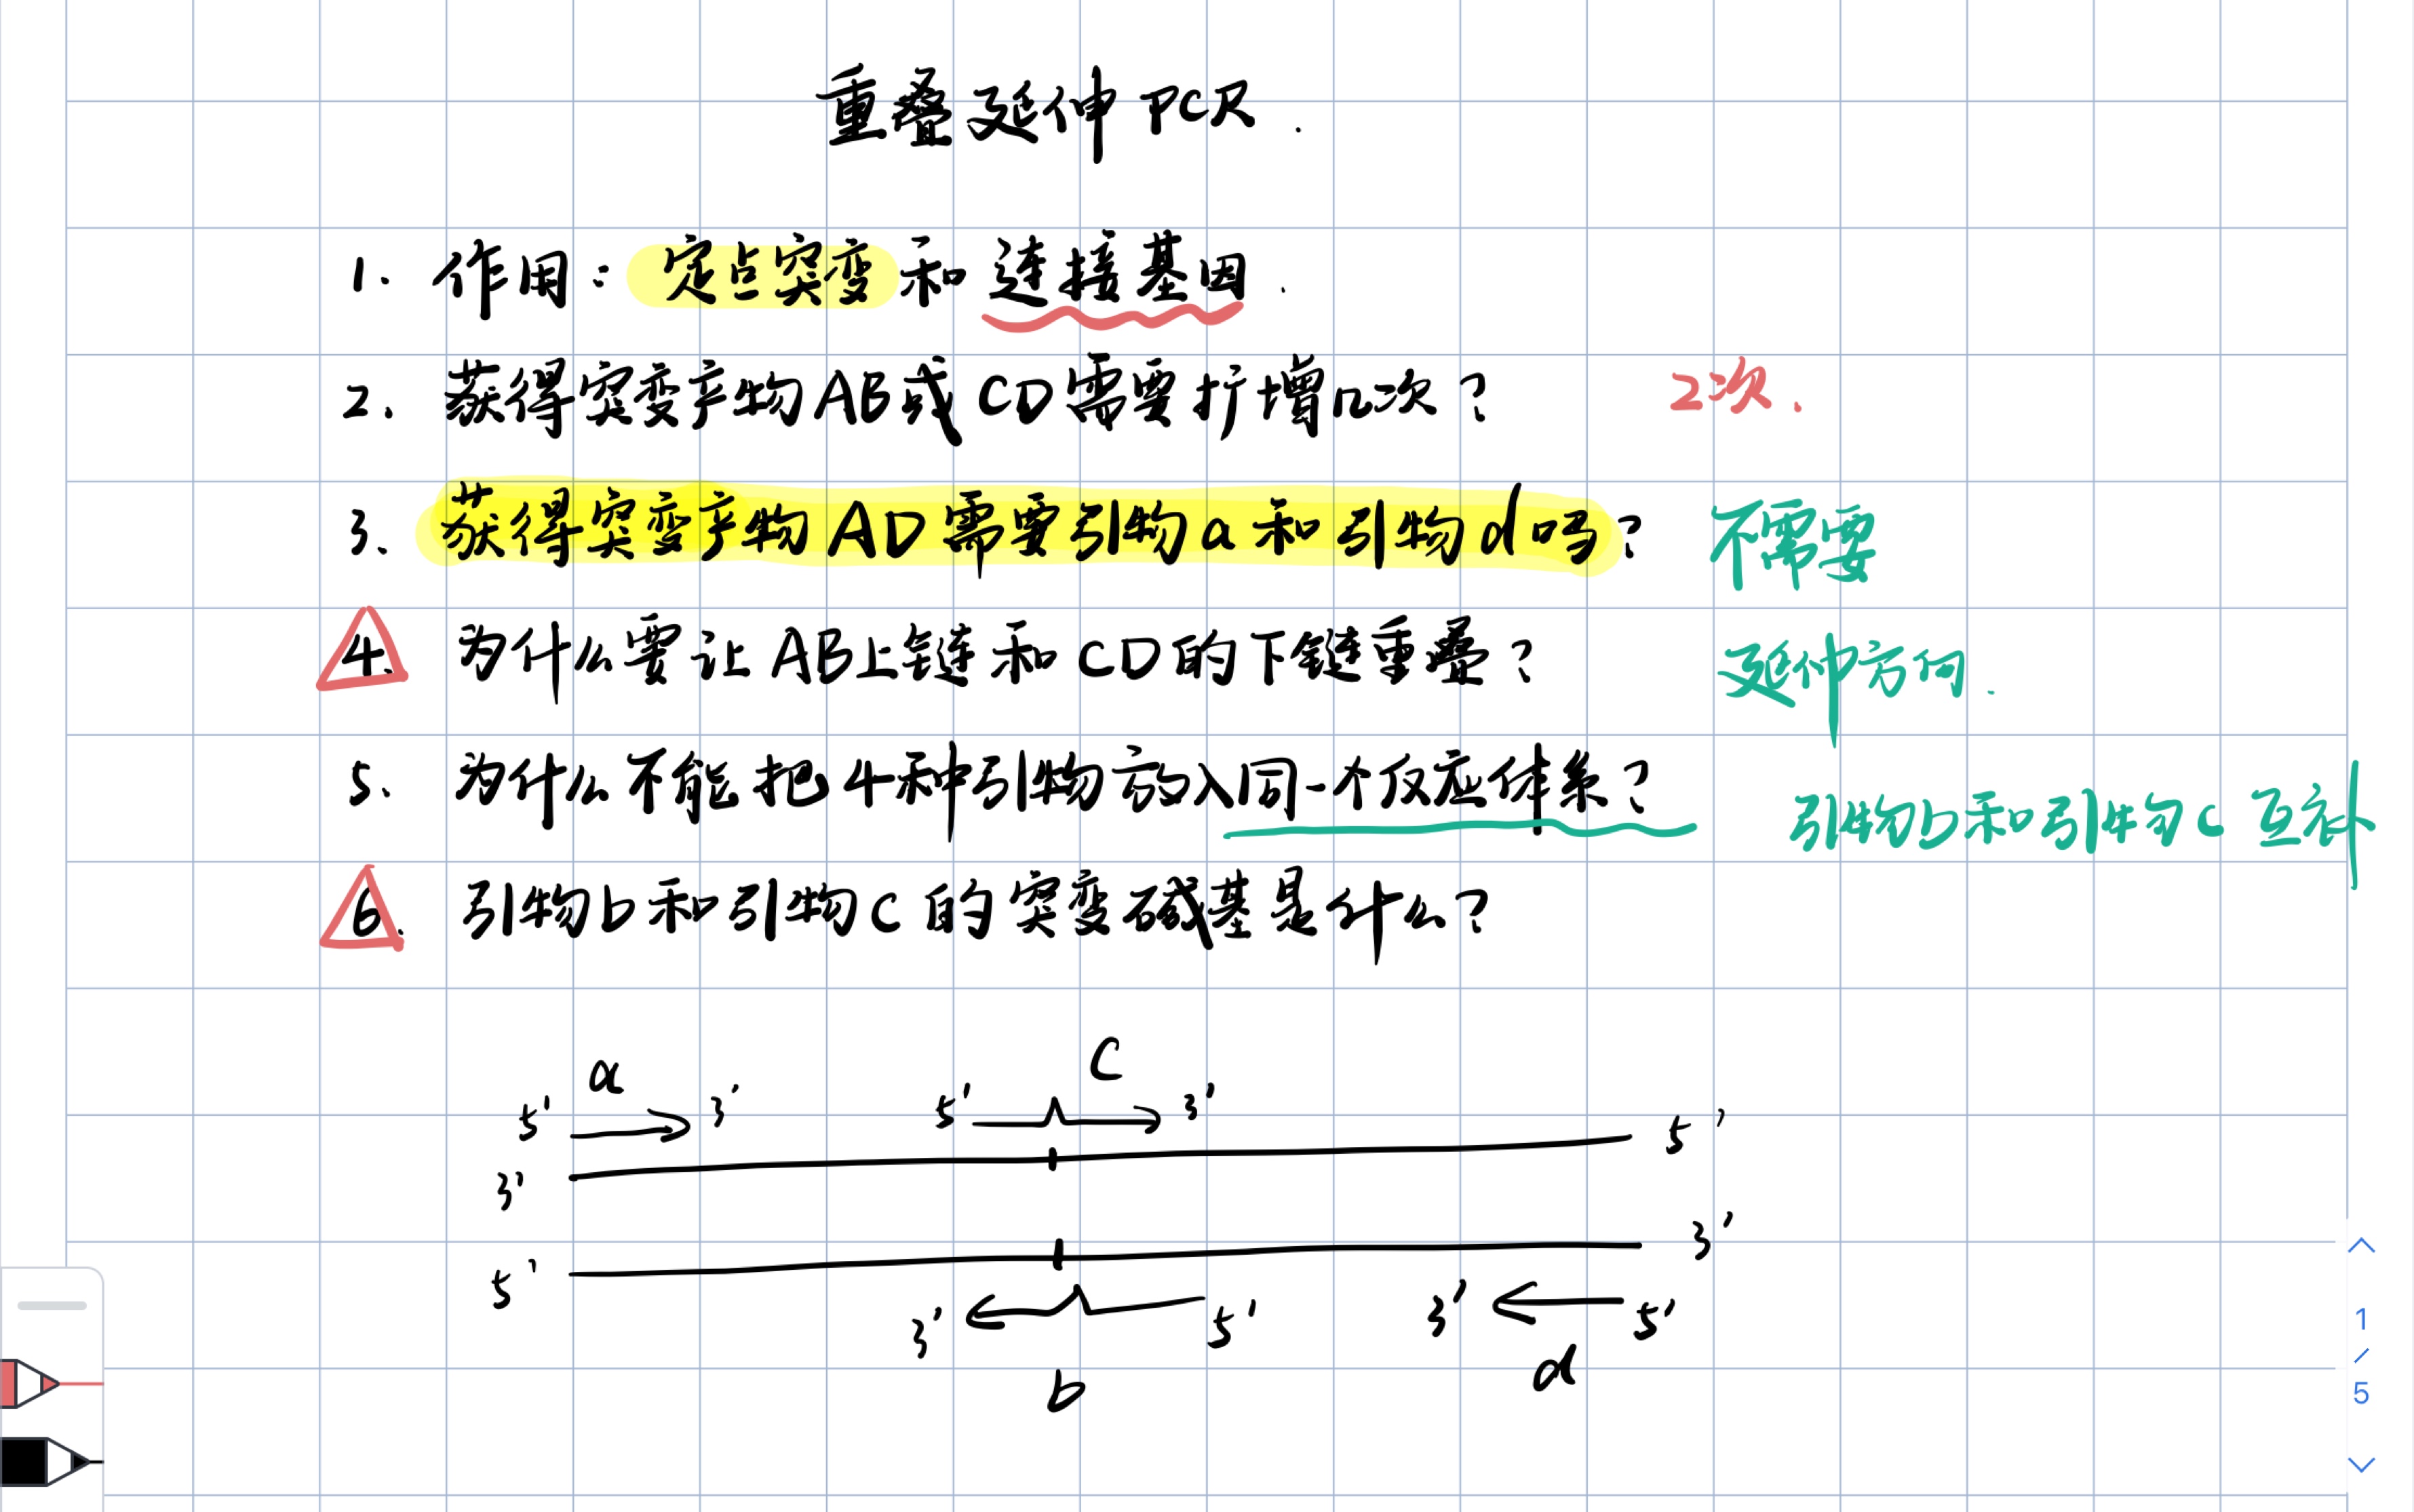 重叠延伸PCR.
1. 作用：定点突变和连接基因.
2. 获得突变产物AB或CD需要扩增几次？ 2次.
3、获得突变产物AD需要引物a和引物d吗？ 不需要
4. 为什么要让AB上链和CD的下链重叠？ 延伸方向.
5、为什么不能把4种引物放入同一个仅应体系？ 引物b和引物c互补
6. 引物b和引物c的突变碱基是什么？
a C
5' 3' 5' 3'
3' 5'
5' 3'
3' 5' 3' 5'
b d
1
/
5